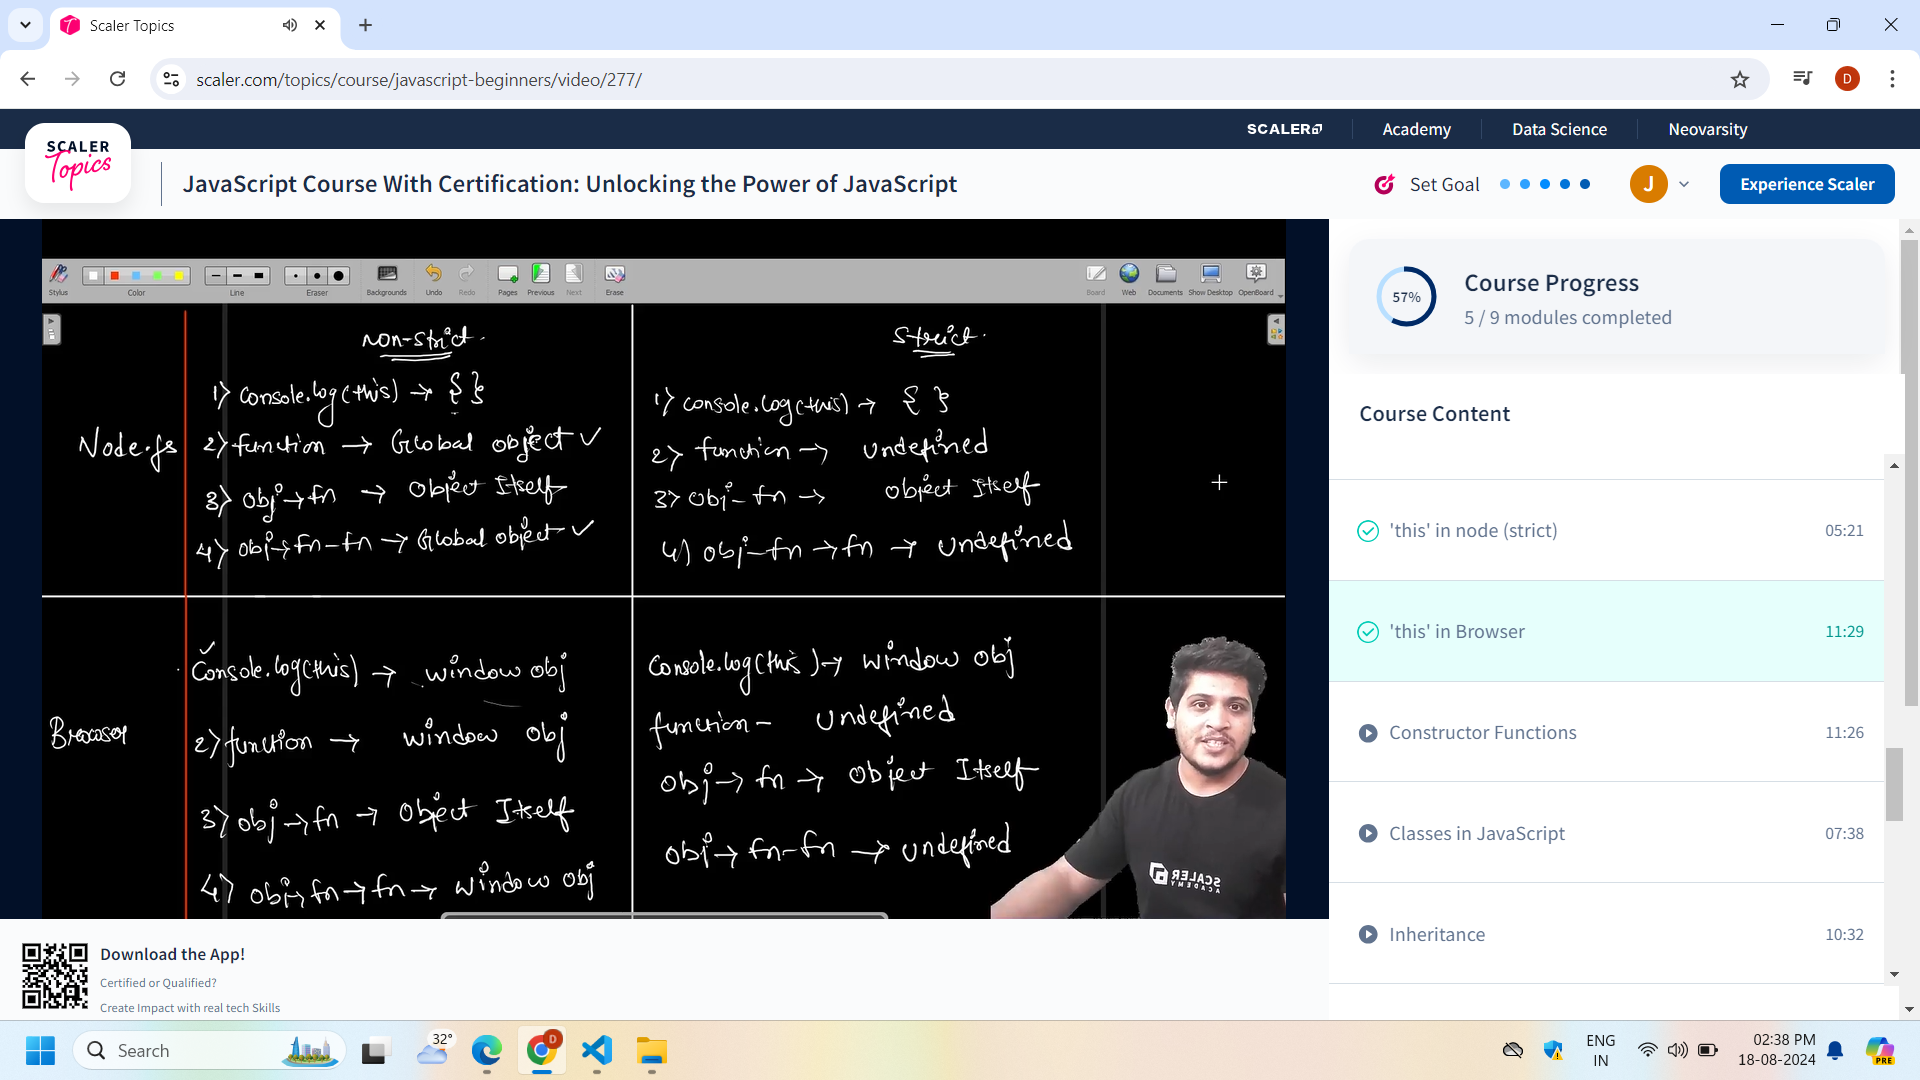 Scaler Topics
scaler.com/topics/course/javascript-beginners/video/277/
D
SCALER
Academy
Data Science
Neovarsity
SCALER
Topics
JavaScript Course With Certification: Unlocking the Power of JavaScript
Set Goal
J
Experience Scaler
Stylus
Color
Line
Eraser
Backgrounds
Undo
Redo
Pages
Previous
Next
Erase
Board
Web
Documents
Show Desktop
OpenBoard
Non-strict.
Strict.
Node.js
1) Console.log(this) → { }
2) function → Global object ✓
3) obj → fn → Object Itself
4) obj → fn-fn → Global object ✓
1) console.log(this) → { }
2) function → undefined
3) obj-fn → object Itself
4) obj-fn → fn → undefined
Browser
✓
Console.log(this) → window obj
2) function → window obj
3) obj → fn → Object Itself
4) obj → fn → fn → window obj
Console.log(this) → window obj
function - undefined
obj → fn → Object Itself
obj → fn-fn → undefined
SCALER
ACADEMY
57%
Course Progress
5 / 9 modules completed
Course Content
'this' in node (strict) 05:21
'this' in Browser 11:29
Constructor Functions 11:26
Classes in JavaScript 07:38
Inheritance 10:32
Download the App!
Certified or Qualified?
Create Impact with real tech Skills
Search
32°
D
ENG
IN
02:38 PM
18-08-2024
PRE